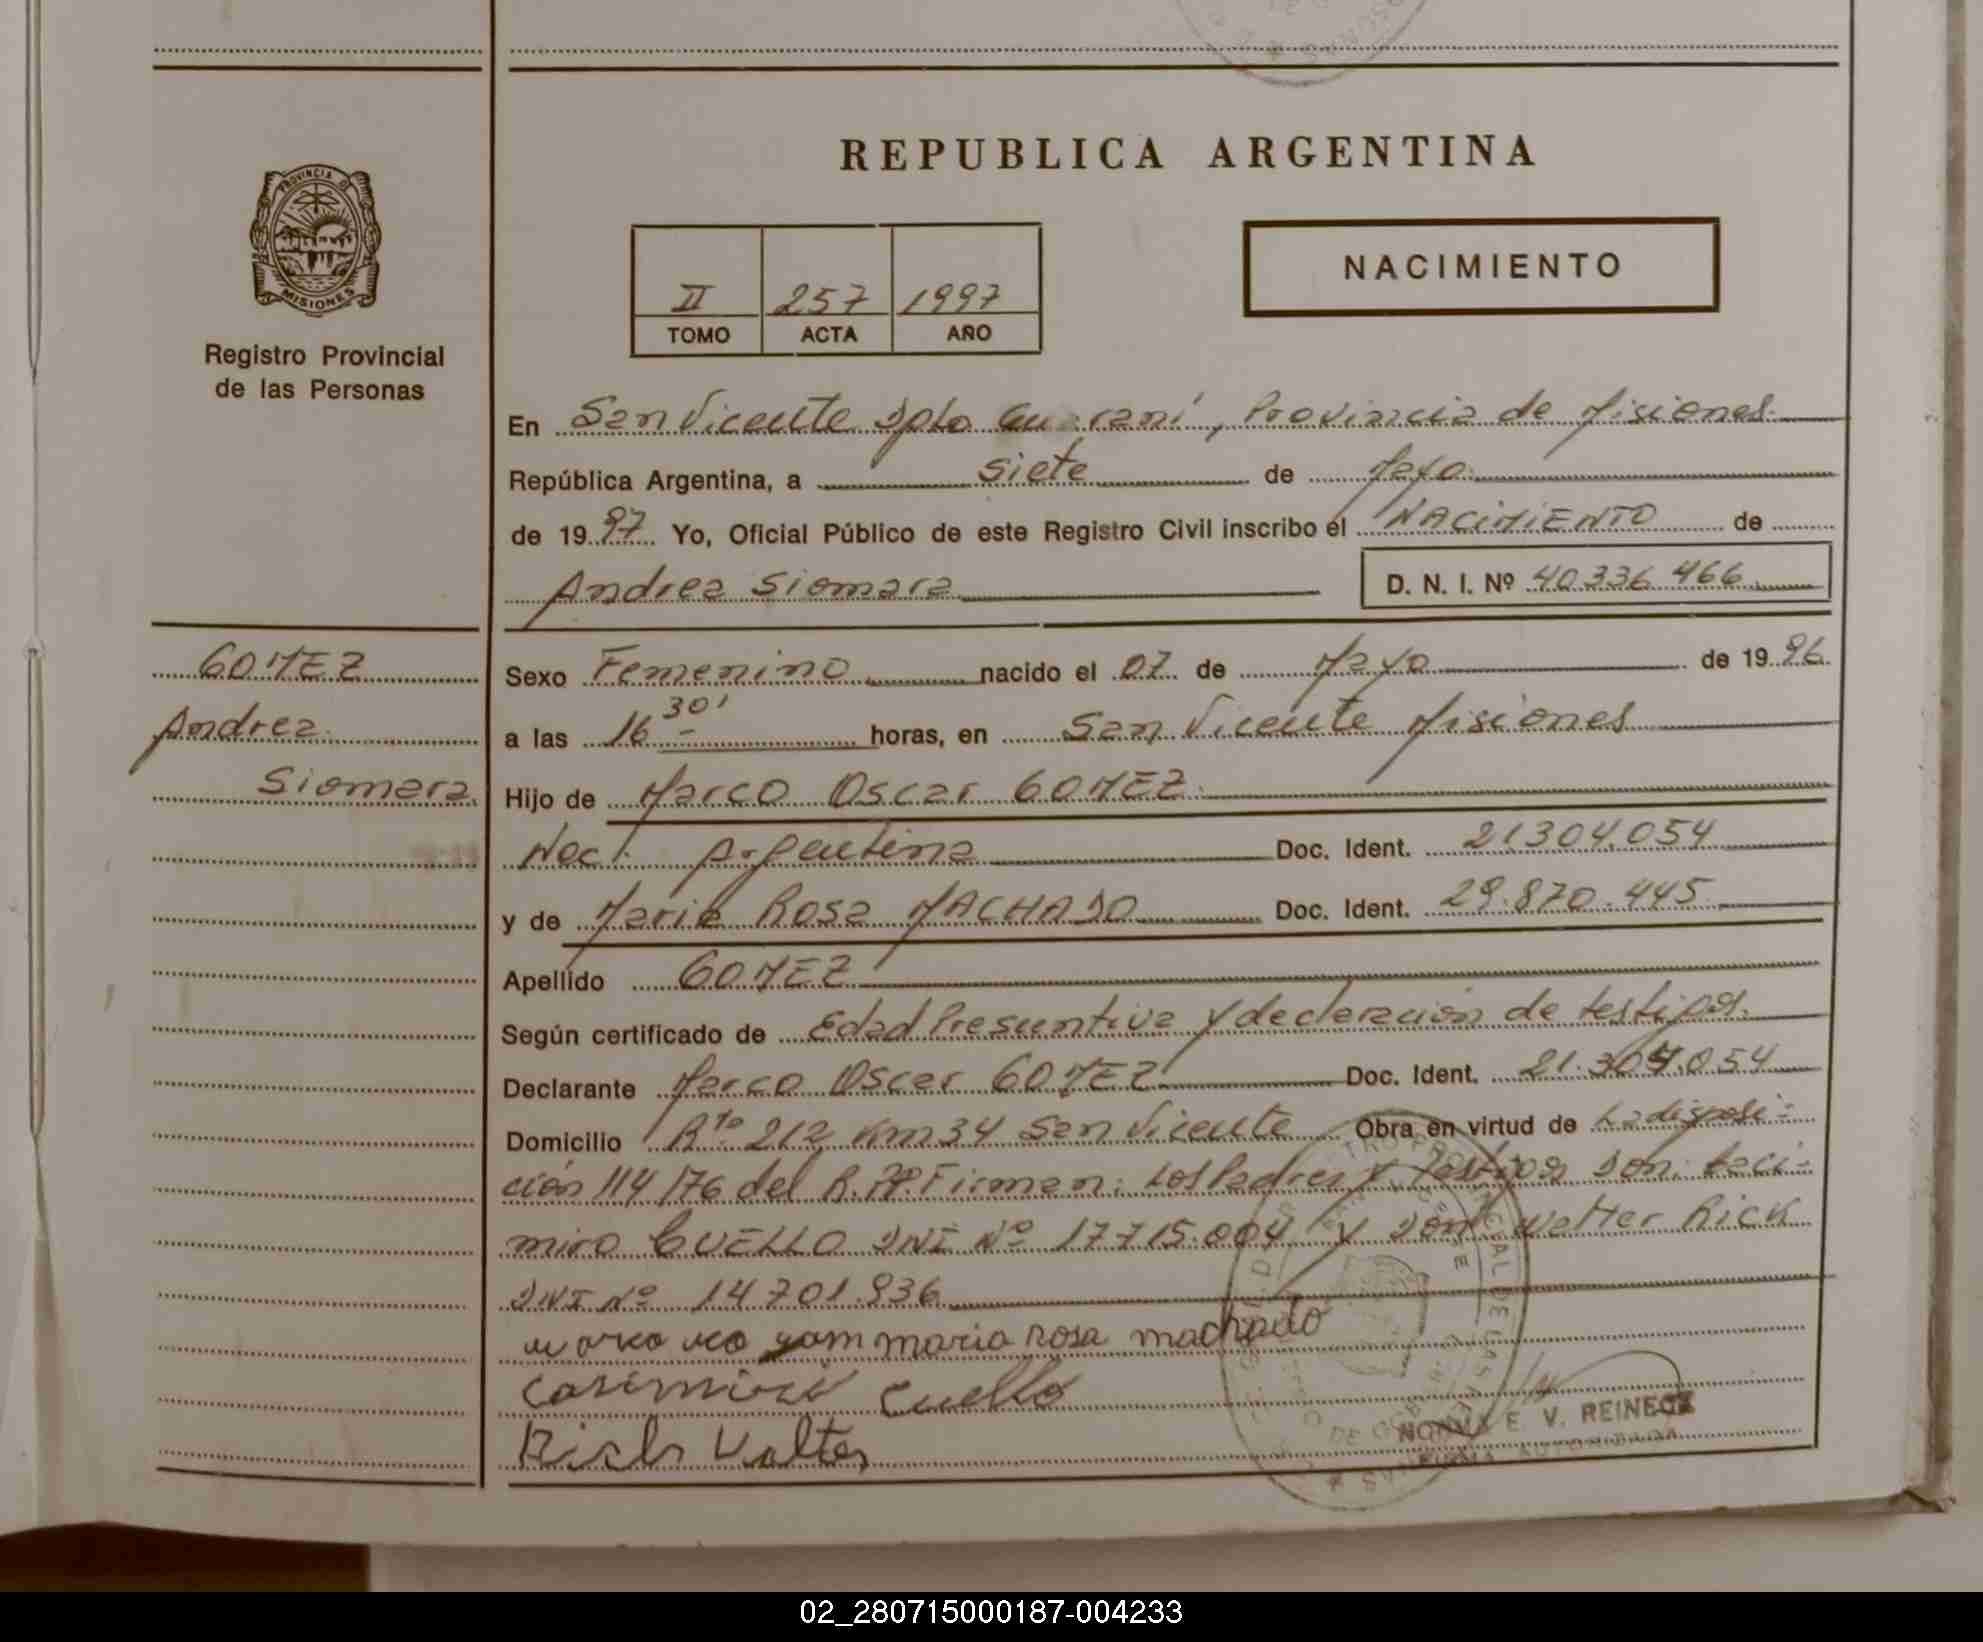 REPUBLICA ARGENTINA
PROVINCIA DE
MISIONES
Registro Provincial
de las Personas
II 257 1997
TOMO ACTA AÑO
NACIMIENTO
En San Vicente Dpto Guaraní, Provincia de Misiones
República Argentina, a siete de Mayo
de 1997 Yo, Oficial Público de este Registro Civil inscribo el NACIMIENTO de
Andrea Siomara
D. N. I. Nº 40336466
GOMEZ
Andrea
Siomara
Sexo Femenino nacido el 07 de Mayo de 1996
a las 16 30' horas, en San Vicente Misiones
Hijo de Marco Oscar GOMEZ
Nac. Argentina Doc. Ident. 21304.054
y de Maria Rosa MACHADO Doc. Ident. 29.870.445
Apellido GOMEZ
Según certificado de Edad Presuntiva y declaración de testigos.
Declarante Marco Oscar GOMEZ Doc. Ident. 21.304.054
Domicilio Rta 212 Km 34 San Vicente Obra en virtud de La disposi-
ción 114/76 del R.PP. Firman: Los Padres y Testigos Don: Caci-
miro CUELLO DNI Nº 17715.004 y Don Walter Rick
DNI Nº 14701.936
maria rosa machado
Cuello
Rick Valter
E. V. REINECK
FIRMA AUTORIZADA
02_280715000187-004233